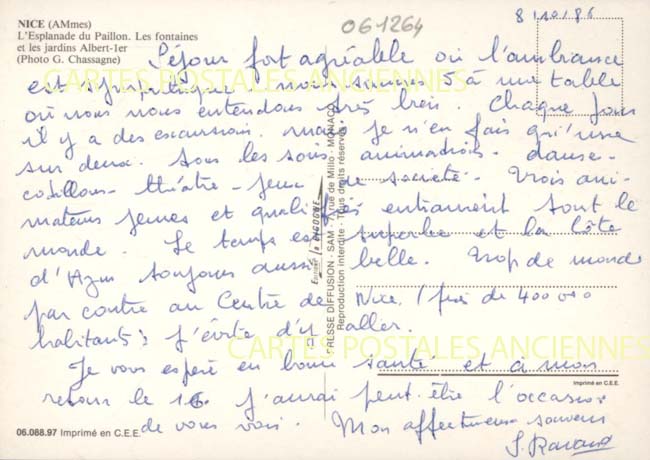 NICE (AMmes)
L'Esplanade du Paillon. Les fontaines
et les jardins Albert-1er
(Photo G. Chassagne)
061264
8/10/86
Séjour fort agréable où l'ambiance
est sympathique nous sommes à une table
où nous nous entendons très bien. Chaque jour
il y a des excursion. mais je n'en fais qu'une
sur deux. Tous les soirs animations. danse.
cotillons. théâtre - jeux de société. Trois ani-
mateurs jeunes et qualifiés entrainent tout le
monde. Le temps est superbe et la Côte
d'Azur toujours aussi belle. Trop de monde
par contre au Centre de Nice, (près de 400 000
habitants) j'évite d'y aller.
Je vous espère en bonne santé et à mon
retour le 16 j'aurai peut-être l'occasion
de vous voir. Mon affectueux souvenir
CARTES POSTALES ANCIENNES
CARTES POSTALES ANCIENNES
DIFFUSION - SAM - rue de Millo - MONACO
Reproduction interdite - Tous droits réservés
Imprimé en C.E.E.
06.088.97 Imprimé en C.E.E.